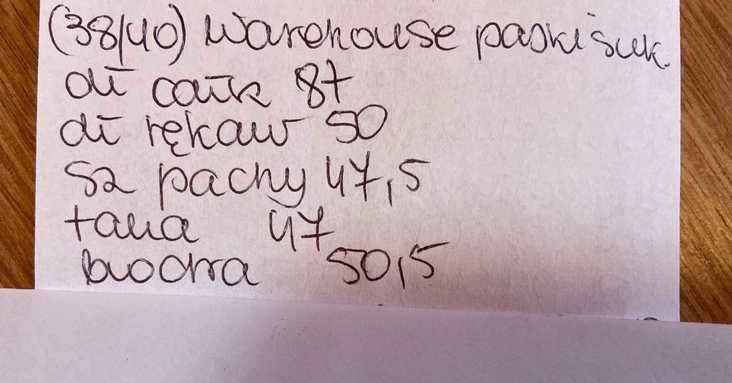 (38/40) Warehouse paski suk.
dł całk 87
dł rękaw 50
sz pachy 47,5
talia 47
biodra 50,5